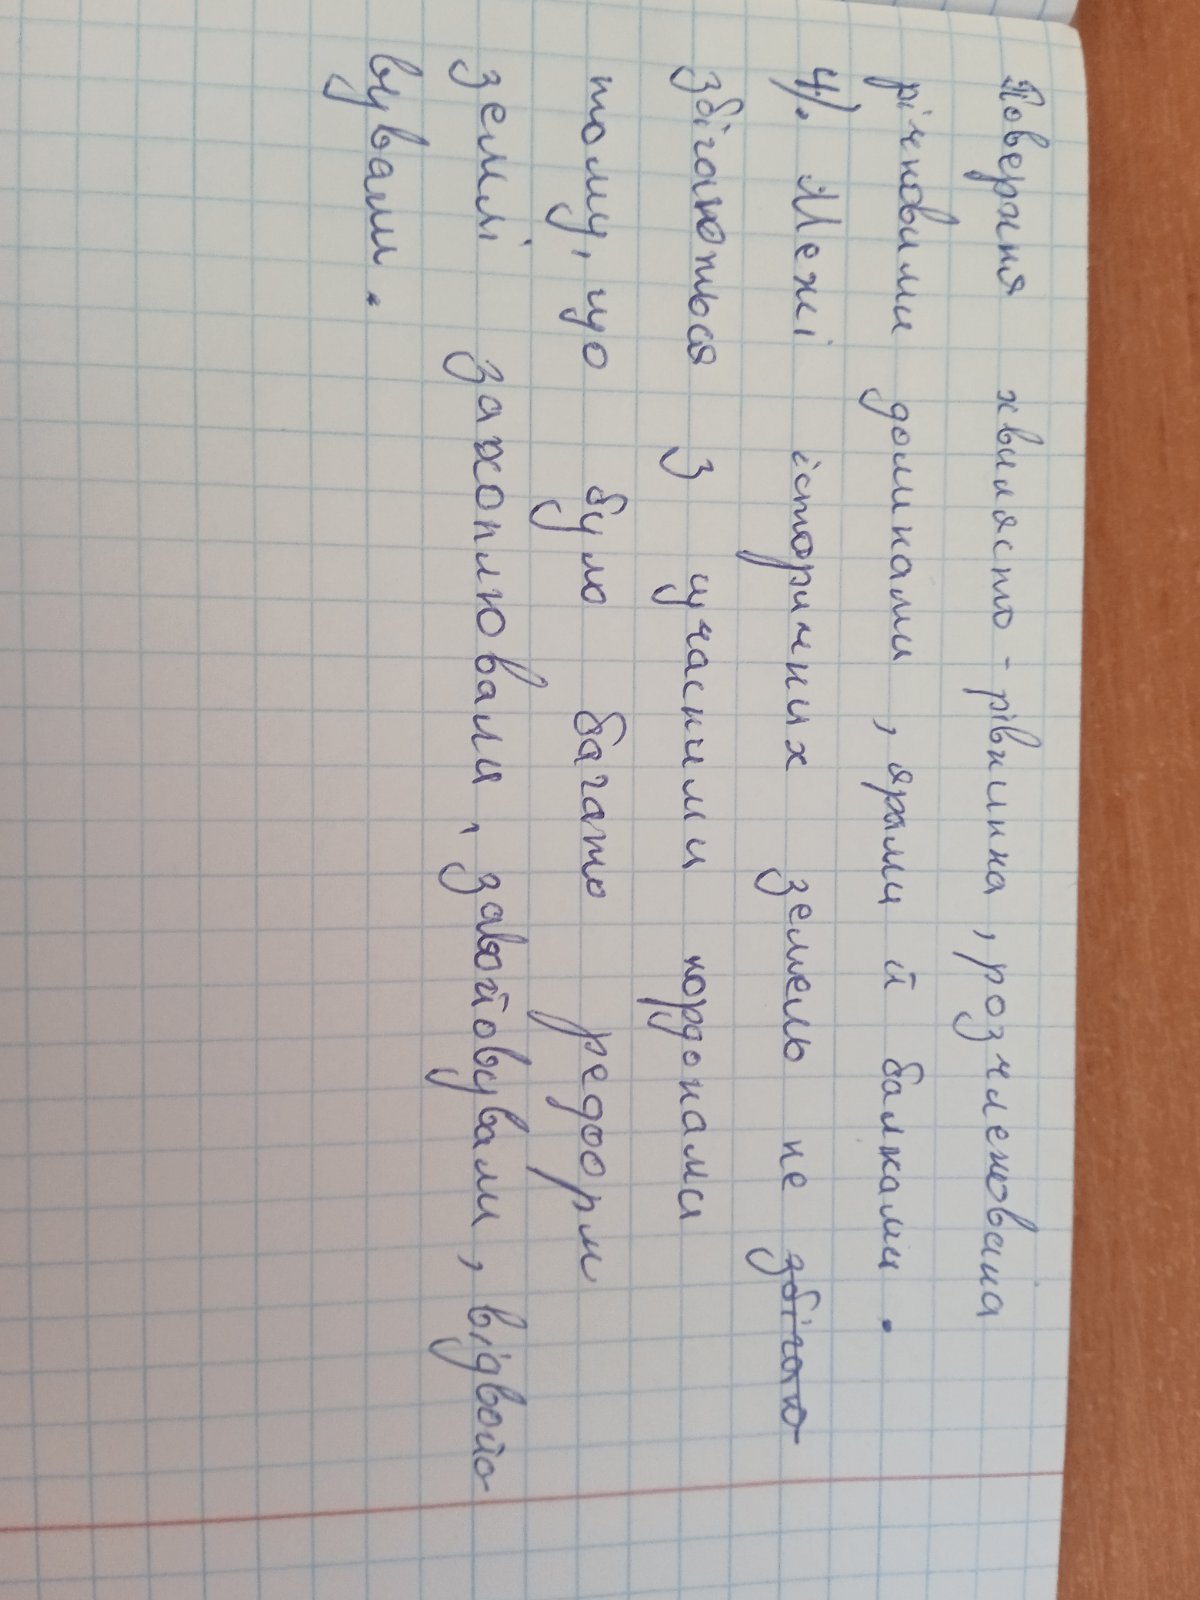 Поверхня хвилясто-рівнинна, розчленована
річковими долинами, ярами й балками.
4). Межі історичних земель не збігаю
збігаються з цучасними кордонами
тому, що було багато реформ
землі захоплювали, завойовували, відвойо
вували.